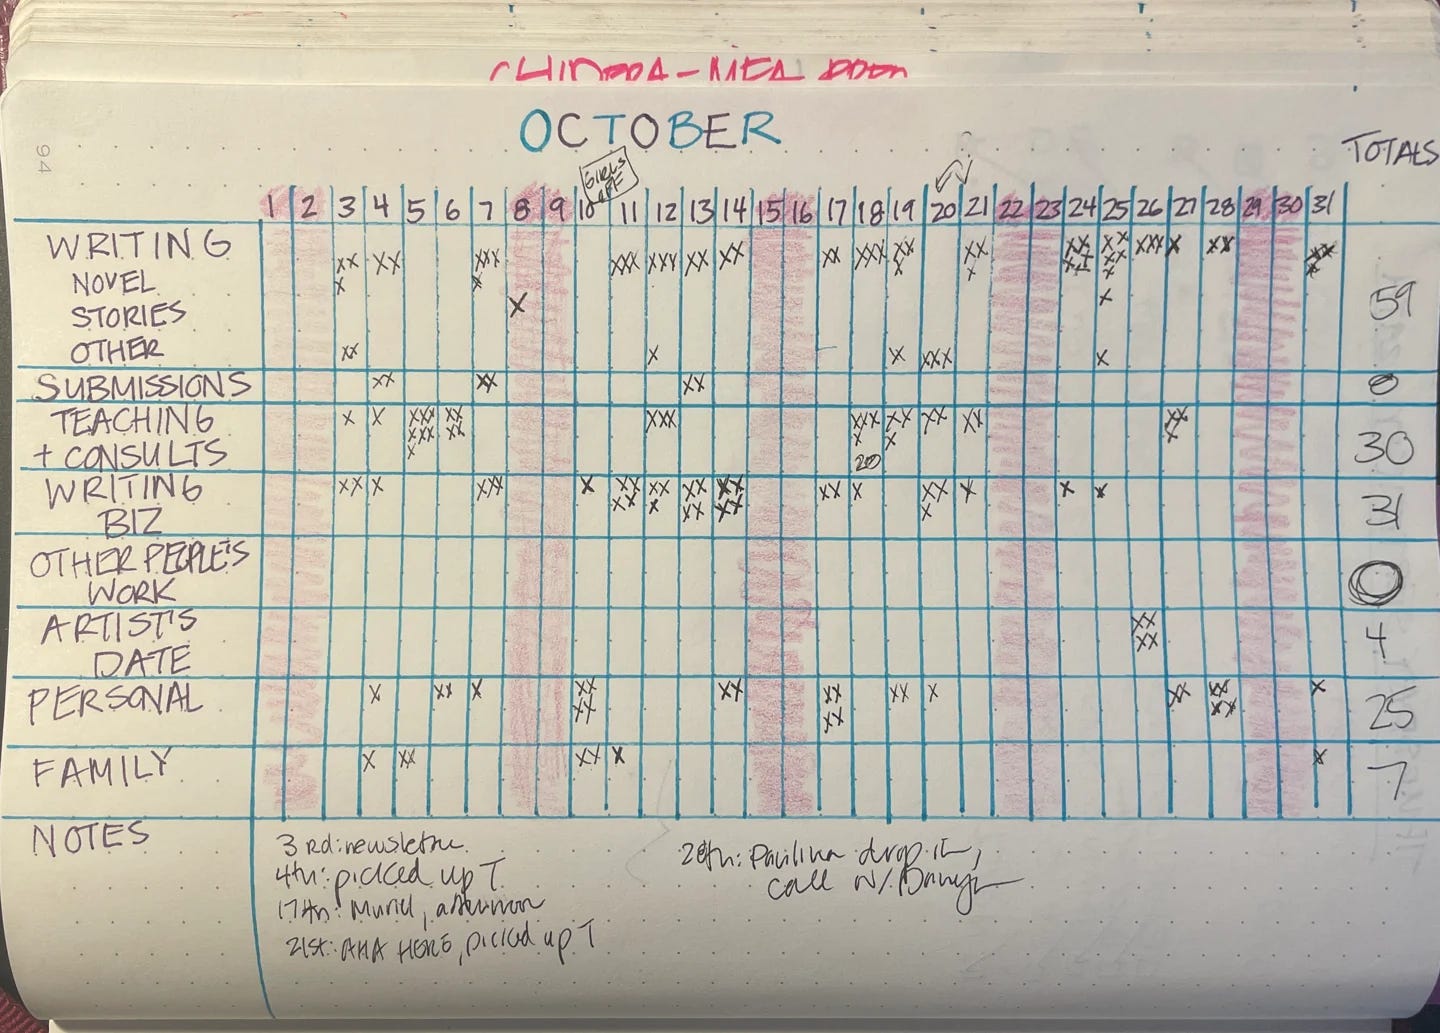 OCTOBER
TOTALS
94
GIRLS
1 2 3 4 5 6 7 8 9 10 11 12 13 14 15 16 17 18 19 20 21 22 23 24 25 26 27 28 29 30 31
WRITING
XX XX XXX XXX XXX XX XX XX XXX XX XX XX XX XXX X XX XX
NOVEL
X X X X XX XX X X
STORIES
X X
59
OTHER
XX X X XXX X
SUBMISSIONS
XX XX XX
0
TEACHING
X X XXX XX XXX XXX XX XX XX XX
XXX XX X X X
+ CONSULTS
X 20
30
WRITING
XX X XXX X XX XX XX XX XX X XX X X X
XX X XX XX X
BIZ
31
OTHER PEOPLE'S
WORK
0
ARTIST'S
XX
XX
DATE
4
PERSONAL
X XX X XX XX XX XX X XX XX X
XX XX XX
25
FAMILY
X XX XX X X
7
NOTES
3rd: newsletter
4th: picked up T
17th: Muriel, afternoon
21st: AHA HERE, picked up T
drop in,
call w/